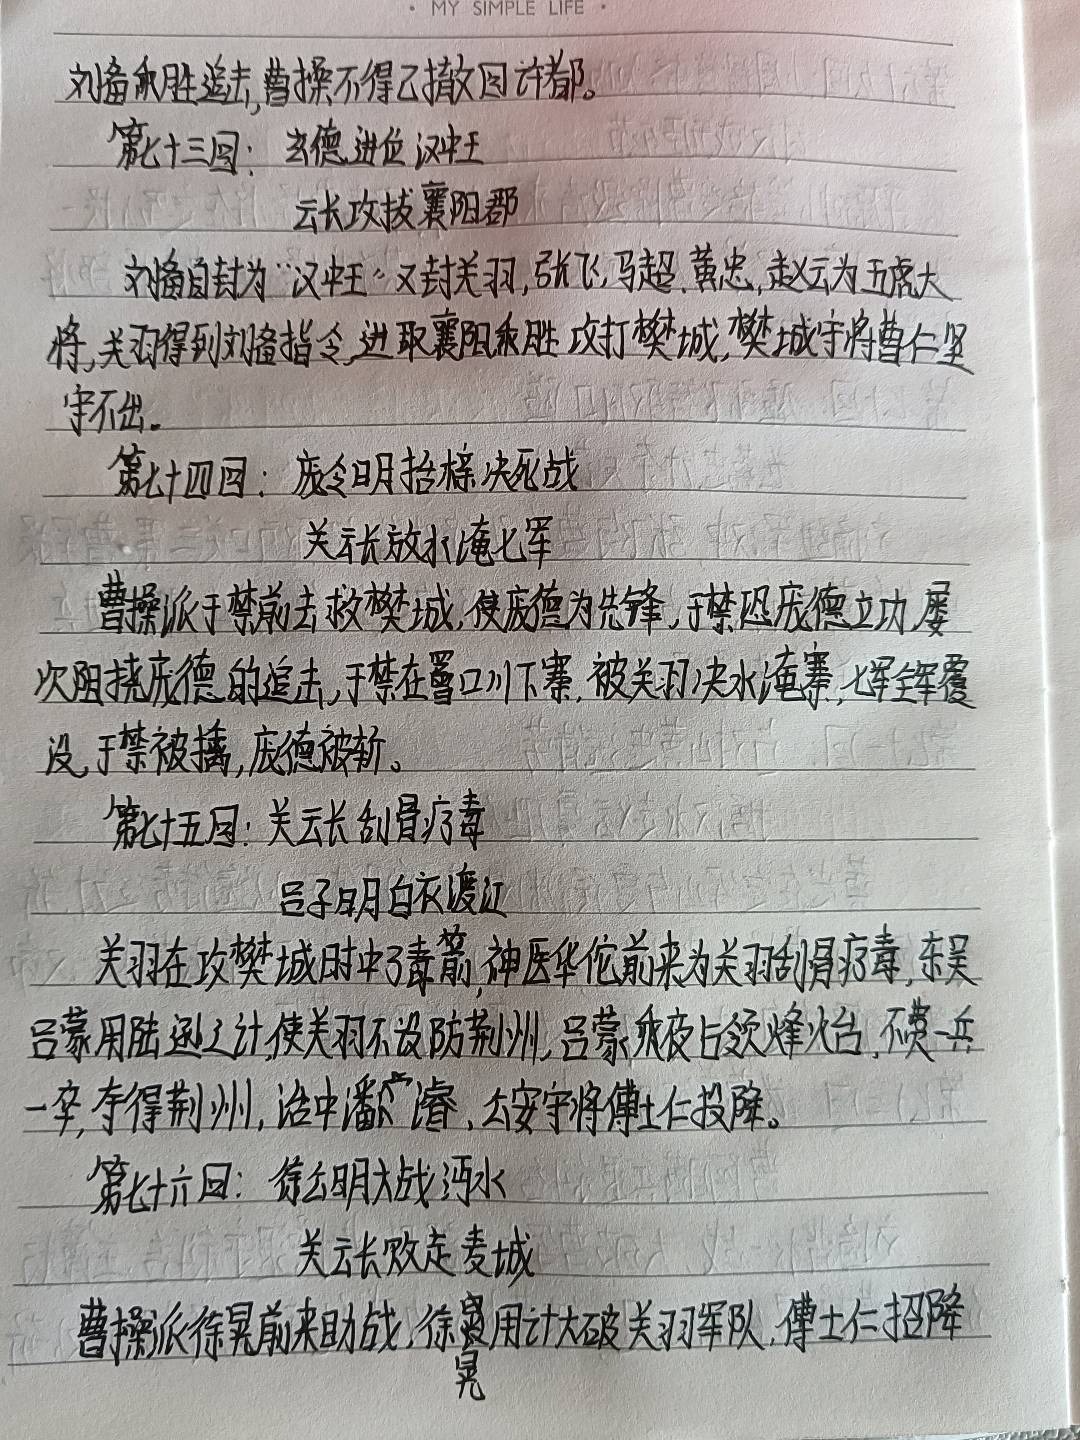 · MY SIMPLE LIFE ·
刘备乘胜追击,曹操不得已撤回许都。
第七十三回: 玄德进位汉中王
云长攻拔襄阳郡
刘备自封为“汉中王”又封关羽,张飞,马超.黄忠,赵云为五虎大
将,关羽得到刘备指令,进取襄阳乘胜攻打樊城,樊城守将曹仁坚
守不出。
第七十四回: 庞令明抬榇决死战
关云长放水淹七军
曹操派于禁前去救樊城,使庞德为先锋,于禁恐庞德立功,屡
次阻挠庞德的追击,于禁在罾口川下寨,被关羽决水淹寨,七军全军覆
没,于禁被擒,庞德被斩。
第七十五回: 关云长刮骨疗毒
吕子明白衣渡江
关羽在攻樊城时中了毒箭,神医华佗前来为关羽刮骨疗毒,东吴
吕蒙用陆逊之计,使关羽不设防荆州,吕蒙乘夜占领烽火台,不费一兵
一卒,夺得荆州,治中潘濬、公安守将傅士仁投降。
第七十六回: 徐公明大战沔水
关云长败走麦城
曹操派徐晃前来助战,徐用计大破关羽军队,傅士仁招降
晃